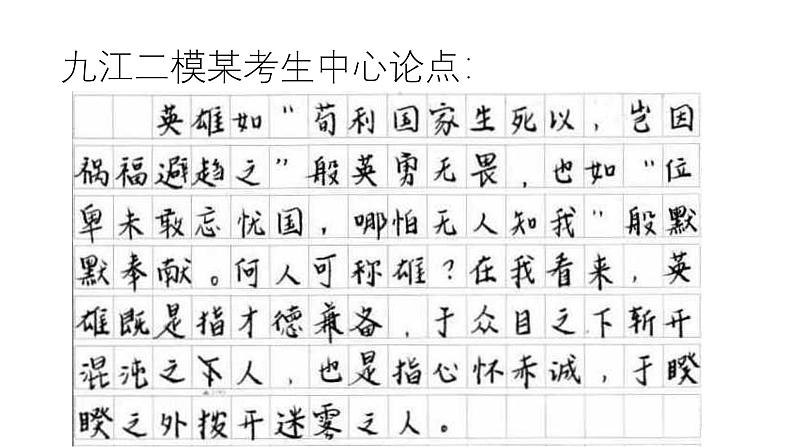 九江二模某考生中心论点：
英雄如“苟利国家生死以，岂因
祸福避趋之”般英勇无畏，也如“位
卑未敢忘忧国，哪怕无人知我”般默
默奉献。何人可称雄？在我看来，英
雄既是指才德兼备，于众目之下斩开
混沌之人，也是指心怀赤诚，于睽
睽之外拨开迷雾之人。